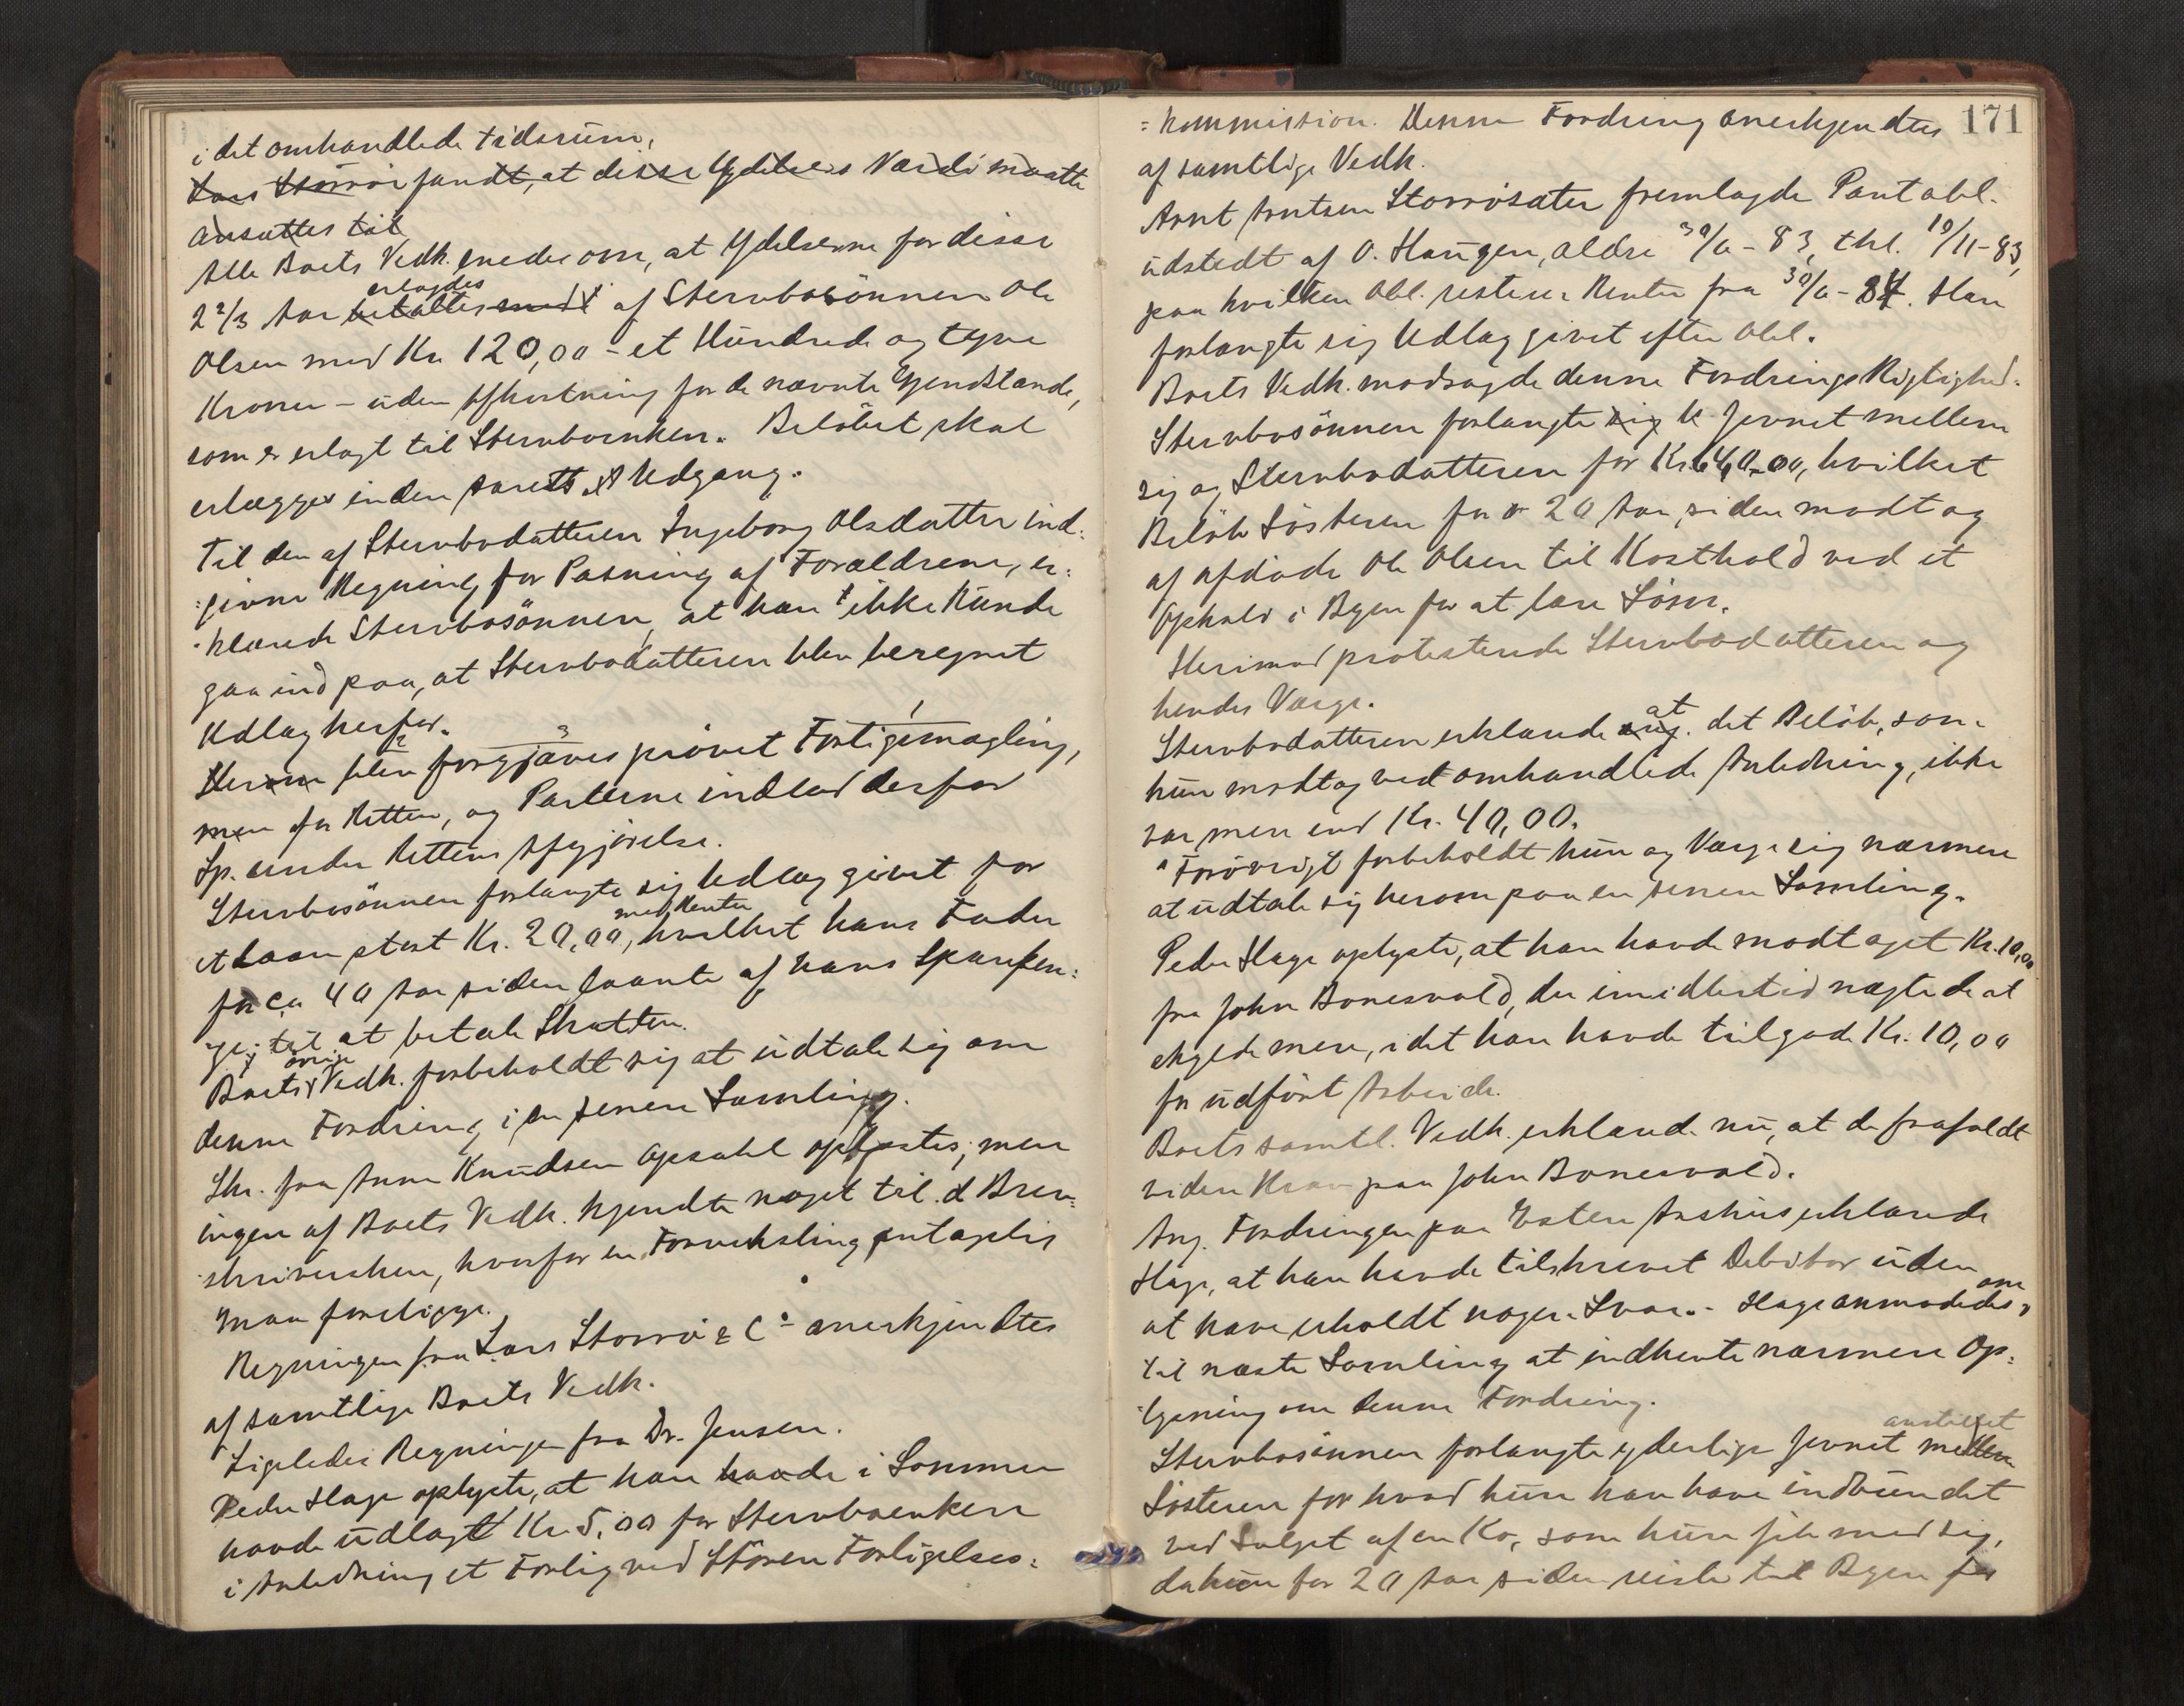 i det omhandlede tidsrum,
Lars Storrøi fandt, at disse Ydelsers Værdi maatte
ansættes til
Alle Boets Vedk. enedes om, at Ydelserne for disse
erlagdes
2 2/3 Aar betaltes med af Stervbosönnen Ole
Olsen med Kr. 120,00 - et Hundrede og tyve
Kroner - uden Afkortning for de nævnte Gjenstande,
som er erlagt til Stervboenken. Belöbet skal
erlægges inden Aarets Udgang.
Til den af Stervbodatteren Ingeborg Olsdatter ind:
:givne Regning for Pasning af Forældrene, er:
:klærede Stervbosönnen, at han ikke kunde
gaa ind paa, at Stervbodatteren blev beregnet
Udlag herfor.
Her blev forgjæves prövet Forligsmægling,
men for Retten, og Parterne indlod derfor
Sp. under Rettens Afgjörelse.
Stervbosönnen forlangte sig Udlæg givet for
med Renter
et Laan stort Kr. 20,00, hvilket hans Fader
for ca 40 Aar siden laante af hans Sparepen:
:ge, til at betale Skatten.
övrige
Boets Vedk. forbeholdt sig at udtale sig om
denne Fordring i en senere Samling.
Skr. fra Anne Knudsen Opsahl oplæstes, men
ingen af Boets Vedk. kjendte noget til d Brev:
:skriversken, hvorfor en Forveksling antagelig
maa foreligge.
Regningen fra Lars Storrö & Co anerkjendtes
af samtlige Boets Vedk.
Ligeledes Regningen fra Dr. Jensen.
Peder Hage oplyste, at han havde i Sommer
havde udlagt Kr. 5,00 for Stervboenken
i Anledning et Forlig ved Stören Forligelses:
171
:kommission. Denne Fordring anerkjendtes
af samtlige Vedk.
Arnt Arntsen Storrösæter fremlagde Pantobl.
udstedt af O. Haugen, ældre 30/6-83, thl. 10/11-83,
paa hvilken Obl. resterer Renter fra 30/6-84. Han
forlangte sig Udlæg givet efter Obl.
Boets Vedk. modsagde denne Fordrings Rigtighed.
Stervbosönnen forlangte sig Jevnet mellem
sig og Stervbodatteren for Kr. 640,00, hvilket
Belöb Sösteren for 20 Aar siden modtog
af afdöde Ole Olsen til Kosthold ved et
Ophold i Byen for at lære Söm.
Herimod protesterede Stervbodatteren og
hendes Værge.
at
Stervbodatteren erklærede det Belöb, som
hun modtog ved omhandlede Anledning, ikke
var mere end Kr. 40,00.
Forövrigt forbeholdt hun og Værge sig nærmere
at udtale sig herom paa en senere Samling.
Peder Hage oplyste, at han havde modtaget Kr. 10,00
fra John Bonesvold, der imidlertid nægtede at
skylde mere, idet han havde tilgode Kr. 10,00
for udfört Arbeide.
Boets samtl. Vedk. erklærede nu, at de frafaldt
videre Krav paa John Bonesvold.
Ang. Fordringen paa Esten Aashus erklærede
Hage, at han havde tilskrevet Debitor uden
om
at have erholdt noget Svar. - Hage anmodedes
til næste Samling at indhente nærmere Op:
:lysning om denne Fordring.
anstillet
Stervbosönnen forlangte yderlige Jevnet mellem
Sösteren for hvad hun kan have indvundet
ved Salget af en Ko, som hun fik med sig,
da hun for 20 Aar siden reiste til Byen for